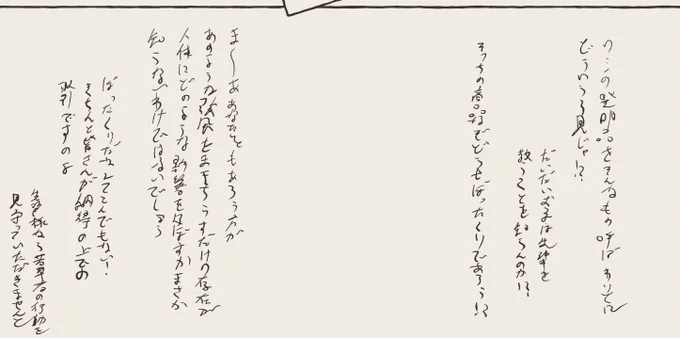 わ…わしの発明品をそんなもの呼ばわりとは
どういう了見じゃ!?
だいたいおまえは先輩を
敬うことを知らんのか!?
そっちの商品などどうせぼったくりであろう!?
ま〜ああなたともあろう方が
あのような強風をまきちらすだけの存在が
人体にどのような影響を及ぼすかまさか
知らないわけではないでしょう
ぼったくりだなんてとんでもない!
きちんと皆さんが納得の上での
取引ですのよ
先輩なら若輩者の行動を
見守っていただきませんと